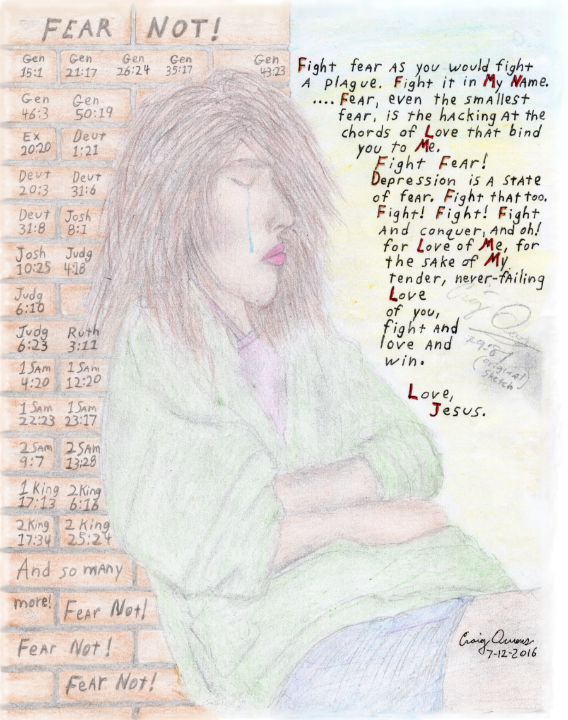 FEAR NOT!
Gen 15:1 Gen 21:17 Gen 26:24 Gen 35:17 Gen 43:23
Gen 46:3 Gen 50:19
Ex 20:20 Deut 1:21
Deut 20:3 Deut 31:6
Deut 31:8 Josh 8:1
Josh 10:25 Judg 4:18
Judg 6:10
Judg 6:23 Ruth 3:11
1 Sam 4:20 1 Sam 12:20
1 Sam 22:23 1 Sam 23:17
2 Sam 9:7 2 Sam 13:28
1 King 17:13 2 King 6:16
2 King 17:34 2 King 25:24
And so many
more! Fear Not!
Fear Not!
Fear Not!
Fight fear as you would fight
a plague. Fight it in My Name.
.... Fear, even the smallest
fear, is the hacking at the
chords of Love that bind
you to Me.
Fight Fear!
Depression is a state
of fear. Fight that too.
Fight! Fight! Fight
and conquer, and oh!
for Love of Me, for
the sake of My
tender, never-failing
Love
of you,
fight and
love and
win.
Love,
Jesus.
(original
sketch)
Craig Owens
7-12-2016